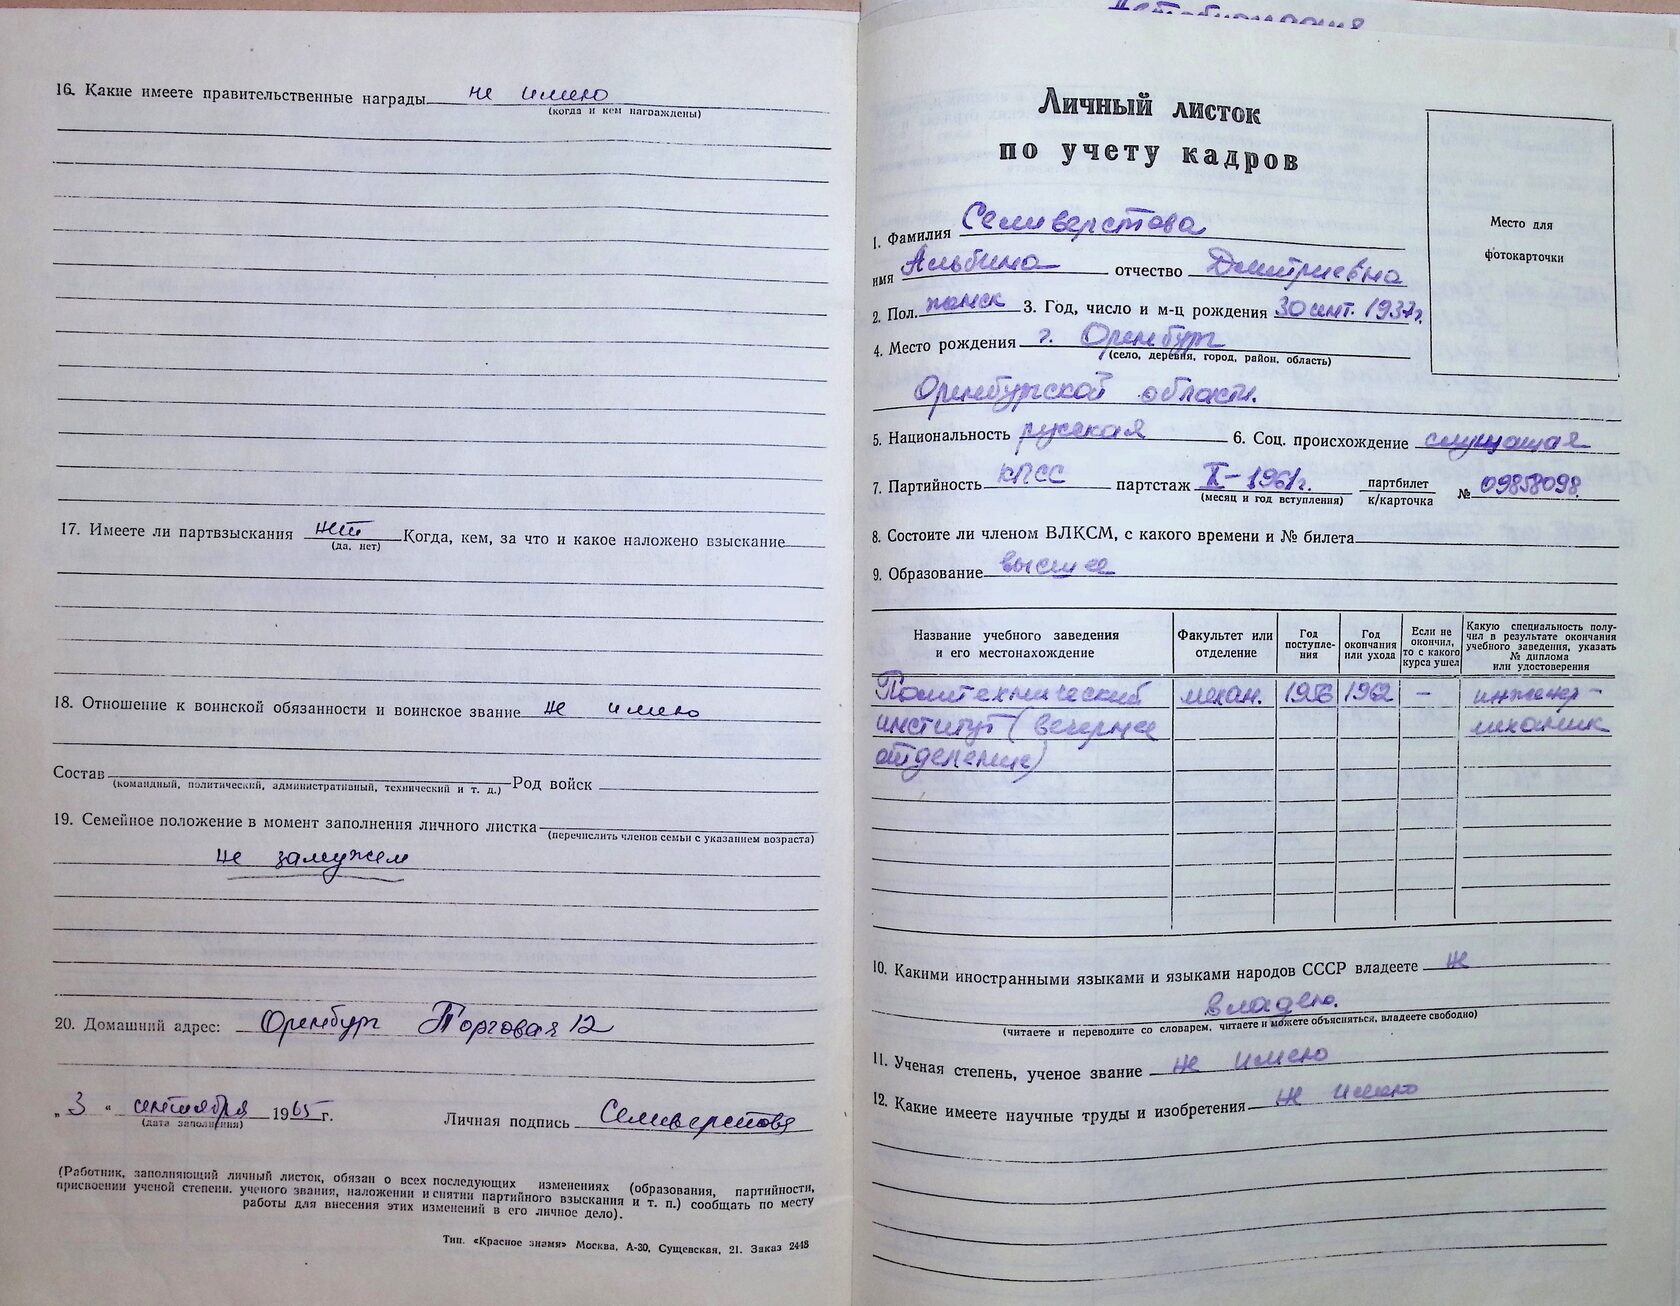 16. Какие имеете правительственные награды не имею
(когда и кем награждены)
17. Имеете ли партвзыскания нет Когда, кем, за что и какое наложено взыскание
(да, нет)
18. Отношение к воинской обязанности и воинское звание не имею
Состав Род войск
(командный, политический, административный, технический и т. д.)
19. Семейное положение в момент заполнения личного листка
(перечислить членов семьи с указанием возраста)
не замужем
20. Домашний адрес: Оренбург Торговая 12
„3“ сентября 1965 г. Личная подпись Селиверстова
(дата заполнения)
(Работник, заполняющий личный листок, обязан о всех последующих изменениях (образования, партийности,
присвоении ученой степени. ученого звания, наложении и снятии партийного взыскания и т. п.) сообщать по месту
работы для внесения этих изменений в его личное дело).
Тип. «Красное знамя» Москва, А-30, Сущевская, 21. Заказ 2448
Личный листок
по учету кадров
Место для
фотокарточки
1. Фамилия Селиверстова
имя Альбина отчество Дмитриевна
2. Пол. женск 3. Год, число и м-ц рождения 30 сент. 1937г.
4. Место рождения г. Оренбург
(село, деревня, город, район, область)
Оренбургской области.
5. Национальность русская 6. Соц. происхождение служащая
7. Партийность КПСС партстаж II – 1961г. партбилет
(месяц и год вступления) к/карточка № 09858098
8. Состоите ли членом ВЛКСМ, с какого времени и № билета
9. Образование высшее
Название учебного заведения и его местонахождение
Факультет или отделение
Год поступле-ния
Год окончания или ухода
Если не окончил, то с какого курса ушел
Какую специальность полу-чил в результате окончания учебного заведения, указать № диплома или удостоверения
Политехнический механ. 1956 1962 – инженер-
институт (вечернее механик
отделение)
10. Какими иностранными языками и языками народов СССР владеете не
владею.
(читаете и переводите со словарем, читаете и можете объясняться, владеете свободно)
11. Ученая степень, ученое звание не имею
12. Какие имеете научные труды и изобретения не имею